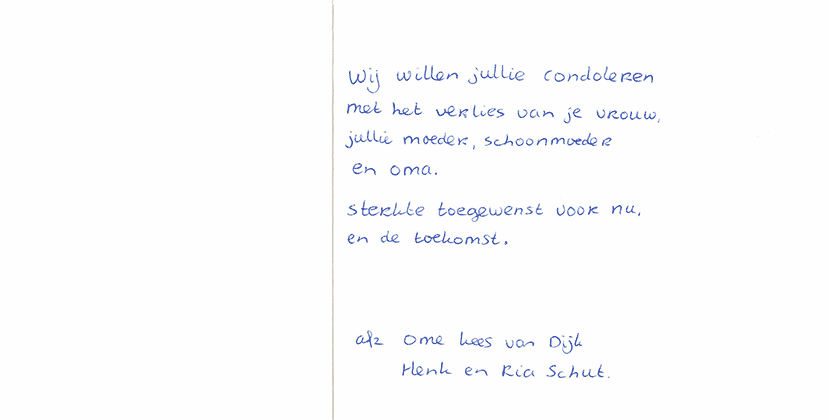 Wij willen jullie condoleren
met het verlies van je vrouw,
jullie moeder, schoonmoeder
en oma.
Sterkte toegewenst voor nu,
en de toekomst.
afz ome Kees van Dijk
Henk en Ria Schut.